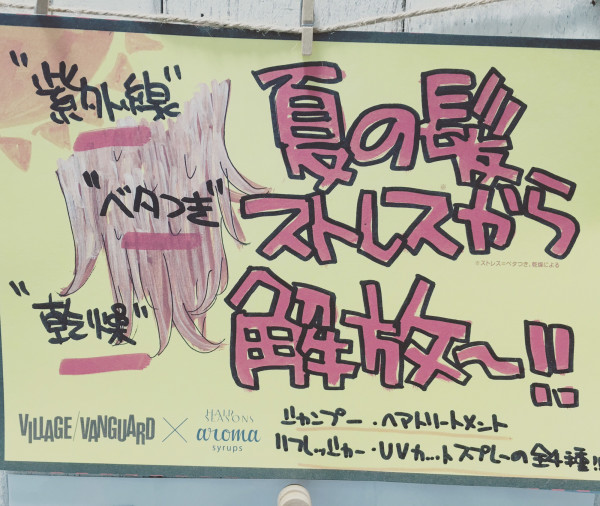 "紫外線"
"ベタつき"
"乾燥"
夏の髪
ストレスから
※ストレス=ベタつき、乾燥による
解放〜!!
VILLAGE/VANGUARD × HAIR SEASONS aroma syrups
シャンプー・ヘアトリートメント
リフレッシャー・UVカットスプレーの全4種!!